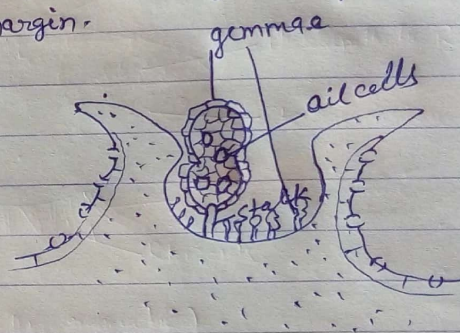 argin.
gemmae
ail cells
Stalk